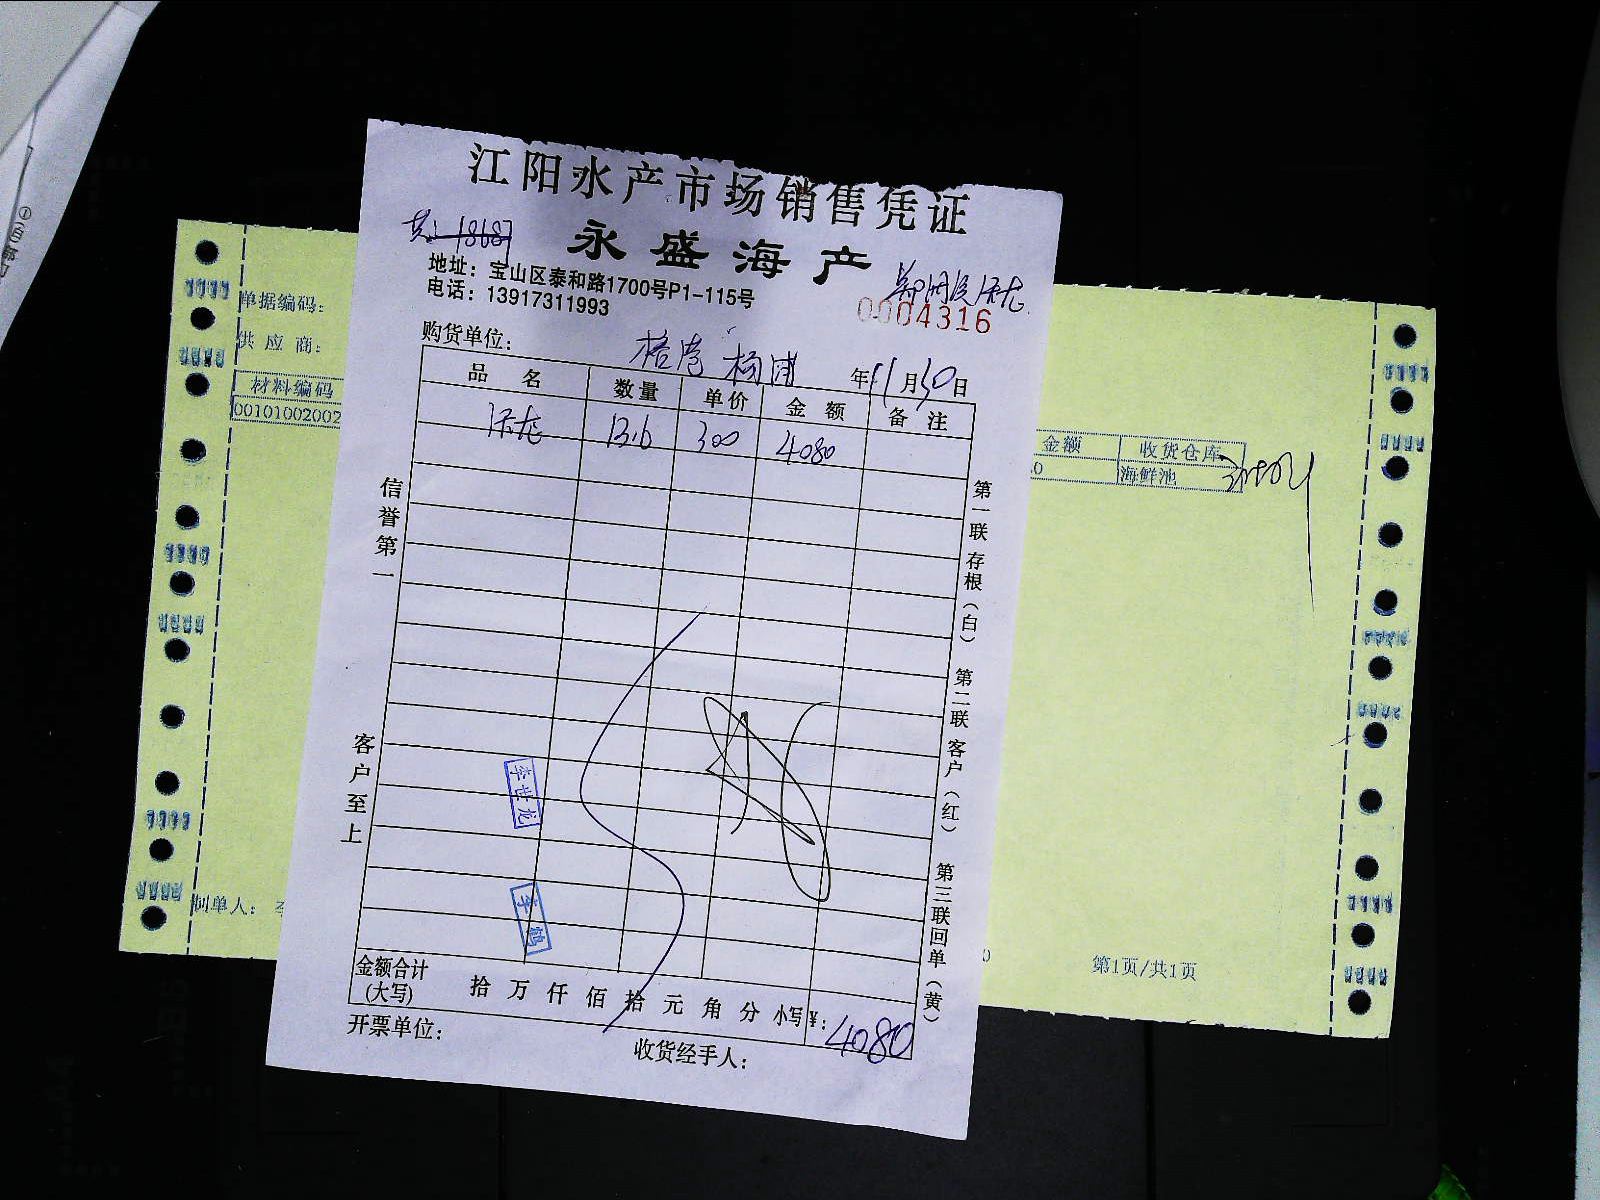 江阳水产市场销售凭证
永盛海产
地址：宝山区泰和路1700号P1-115号
电话：13917311993
0004316
购货单位：
年11月30日
品名 数量 单价 金额 备注
13.6 300 4080
信誉第一
客户至上
第一联存根（白） 第二联客户（红） 第三联回单（黄）
李世龙
李鹤
金额合计
(大写)
拾万仟佰拾元角分 小写¥：4080
开票单位：
收货经手人：
单据编码：
供应商：
材料编码
00101002002
制单人：
金额 收货仓库
.0 海鲜池
第1页/共1页